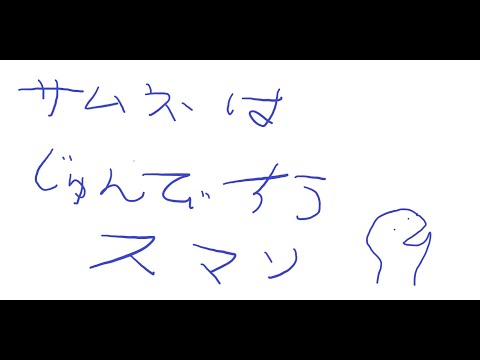 サムネは
じゅんびちう
スマソ